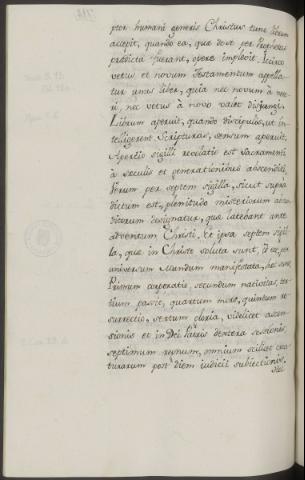 ptor humani generis Christus tunc librum
accepit, quando ea, quæ de se per Prophetas
prædicta fuerant, opere implevit. Idcirco
vetus et novum Testamentum appella-
tur unus liber, quia nec novum à vete-
ri, nec vetus à novo valet disjungi.
Librum aperuit, quando discipulis, ut in-
telligerent Scripturas, sensum aperuit.
Apertio sigilli revelatio est Sacramenti
à seculis et generationibus absconditi.
Verum per septem sigilla, sicut supra
dictum est, plenitudo misteriorum
designatur, quæ latebant ante
adventum Christi. Et ipsa septem sigil-
la, quæ in Christo soluta sunt, id est, per
universum Mundum manifestata, hec sunt.
Primum corporatio, secundum nativitas, ter-
tium passio, quartum mors, quintum re-
surrectio, sextum gloria, videlicet ascen-
sionis et in Dei Patris dextera sessionis,
septimum regnum, omnium scilicet crea-
turarum post diem iudicii subiectionis.